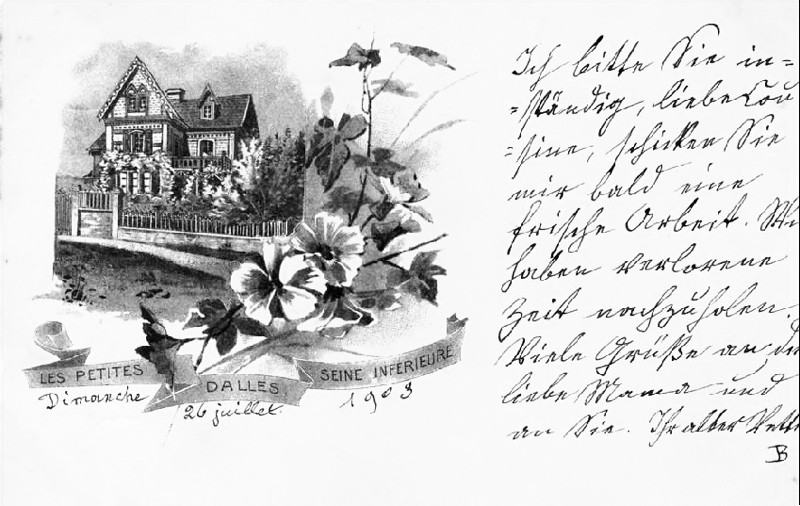 LES PETITES DALLES SEINE INFERIEURE
Dimanche 26 juillet. 1903
Ich bitte Sie in=
=ständig, liebe Cou
=sine, schicken Sie
mir bald eine
frische Arbeit. Wi
haben verlorene
Zeit nachzuholen.
Viele Grüße an die
liebe Mama und
an Sie. Ihr alter Vette
B